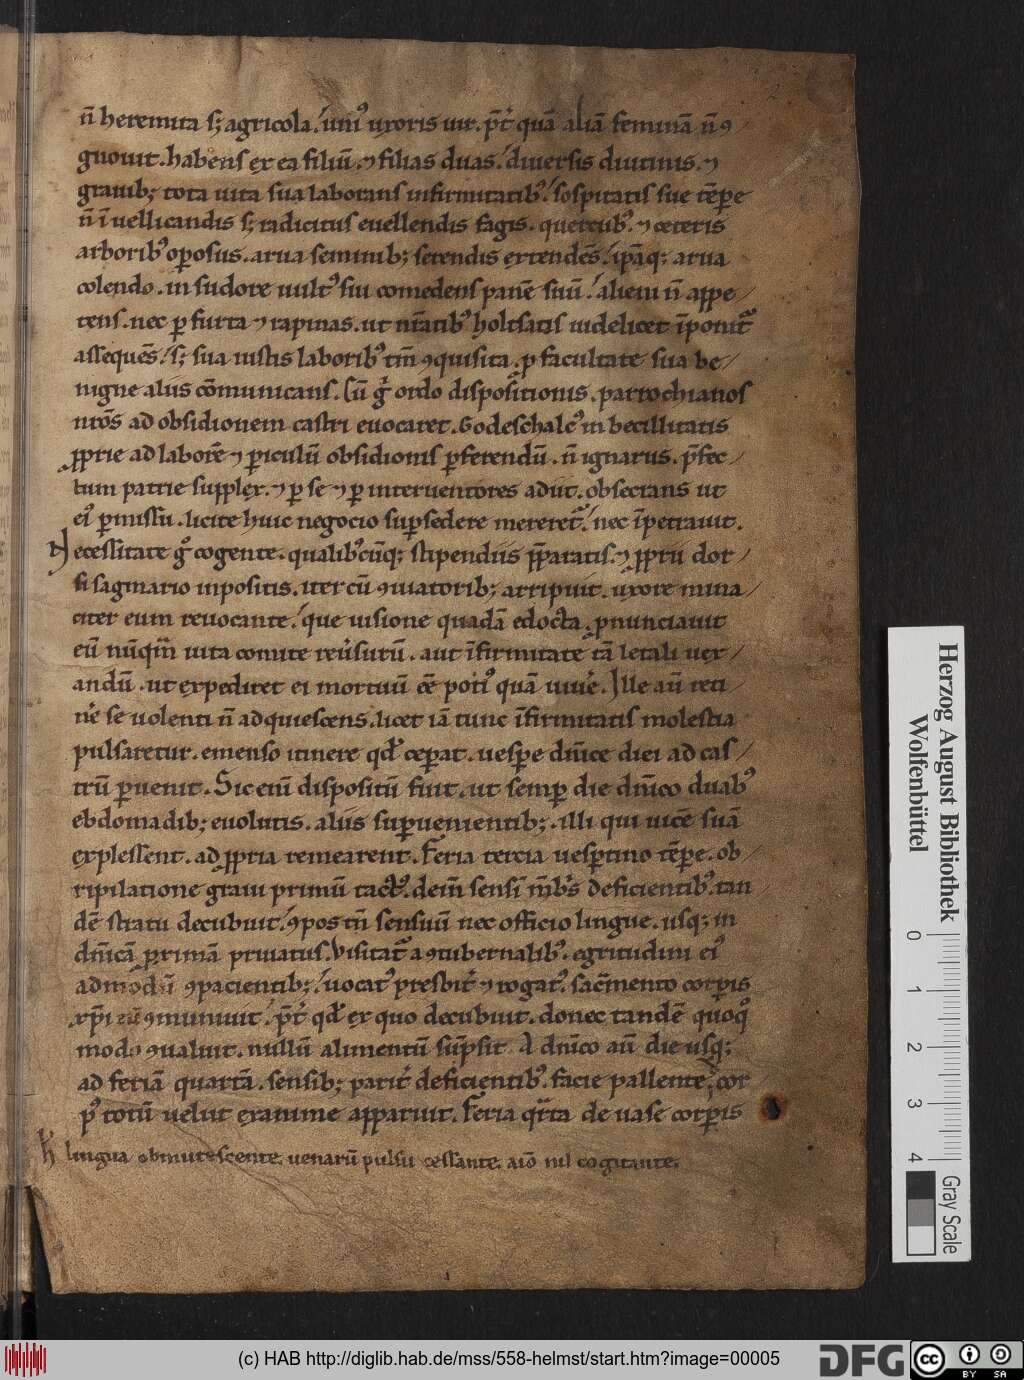 2
n̄ heremita sꝫ agricola. uni᷒ uxoris uir. p̄t᷒ quā aliā feminā n̄ ꝯ
gnouit. habens ex ea filiū ⁊ filias duas. diuersis diutinis. ⁊
grauibꝫ tota uita sua laborans infirmitatib᷒. sospitatis sue tēꝑe
n̄ ī uellicandis sꝫ radicitus euellendis fagis. quercub᷒. ⁊ ceteris
arborib᷒ oꝑosus. arua seminibꝫ serendis extendēs. ip̄aqꝫ arua
colendo. in sudore uult᷒ sui comedens panē suū. alieni n̄ appe
tens. nec ꝑ furta ⁊ rapinas. ut nr̄atib᷒ holtsatis uidelicet īponit᷑
assequēs. sꝫ sua iustis laborib᷒ tm̄ ꝯquisita. ꝓ facultate sua be
nigne aliis cōmunicans. Cū gͦ ordo dispositionis. parrochianos
nr̄os ad obsidionem castri euocaret. Godeschalc᷒ inbecillitatis
ꝓprie ad laborē ⁊ ꝑiculū obsidionis ꝑferendū. n̄ ignarus. p̄fec
tum patrie supplex. ⁊ ꝑ se ⁊ ꝑ interuentores adiit. obsecrans ut
ei᷒ ꝑmissu. licite huic negocio suꝑsedere mereret᷑. nec īpetrauit.
Necessitate gͦ cogente. qualib᷒cūqꝫ stipendiis p̄paratis. ⁊ ꝓprii dor
si saginario inpositis. iter cū ꝯuiatoribꝫ arripuit. uxore mina
citer eum reuocante. que uisione quadā edocta. ꝓnunciauit
eū nūqm̄ uita comite reu᷒surū. aut īfirmitate tā letali uex
andū. ut expediret ei mortuū ēē poti᷒ quā uiu᷒e. Ille aū reti
n᷒e se uolenti n̄ adquiescens. licet iā tunc īfirmitatis molestia
pulsaretur. emenso itinere qd̄ ceꝑat. uesꝑe dn̄ice diei ad cas
trū ꝑuenit. Sic enī dispositū fuit. ut semꝑ die dn̄ico duab᷒
ebdomadibꝫ euolutis. aliis suꝑuenientibꝫ. illi qui uicē suā
explessent. ad ꝓpria remearent. Feria tercia uesꝑtino tēꝑe. ob
ripilatione graui primū tact᷒. dein̄ sensī mēb᷒s deficientib᷒. tan
dē stratu decubuit. ꝯpos tn̄ sensuū nec officio lingue. usqꝫ in
dn̄icā ꝓximā priuatus. Visitat᷑ a ꝯtubernalib᷒. egritudini ei᷒
admodū ꝯpacientibꝫ. uocat᷒ presbit᷒ ⁊ rogat᷒. sac̄mento corꝑis
xp̄i eū ꝯmuniuit. p̄t᷒ qd̄ ex quo decubuit. donec tandē quoqͦ
modo ꝯualuit. nullū alimentū sūpsit. A dn̄ico aū die usqꝫ
ad feriā quartā. sensibꝫ parit᷒ deficientib᷒. facie pallente. cor
p᷒ totū uelut exanime apparuit. Feria qr̄ta de uase corꝑis
lingua obmutescente. uenarū pulsu cessante. aīo nil cogitante.
Herzog August Bibliothek
Wolfenbüttel
0 1 2 3 4
Gray Scale
(c) HAB http://diglib.hab.de/mss/558-helmst/start.htm?image=00005
DFG
cc BY SA